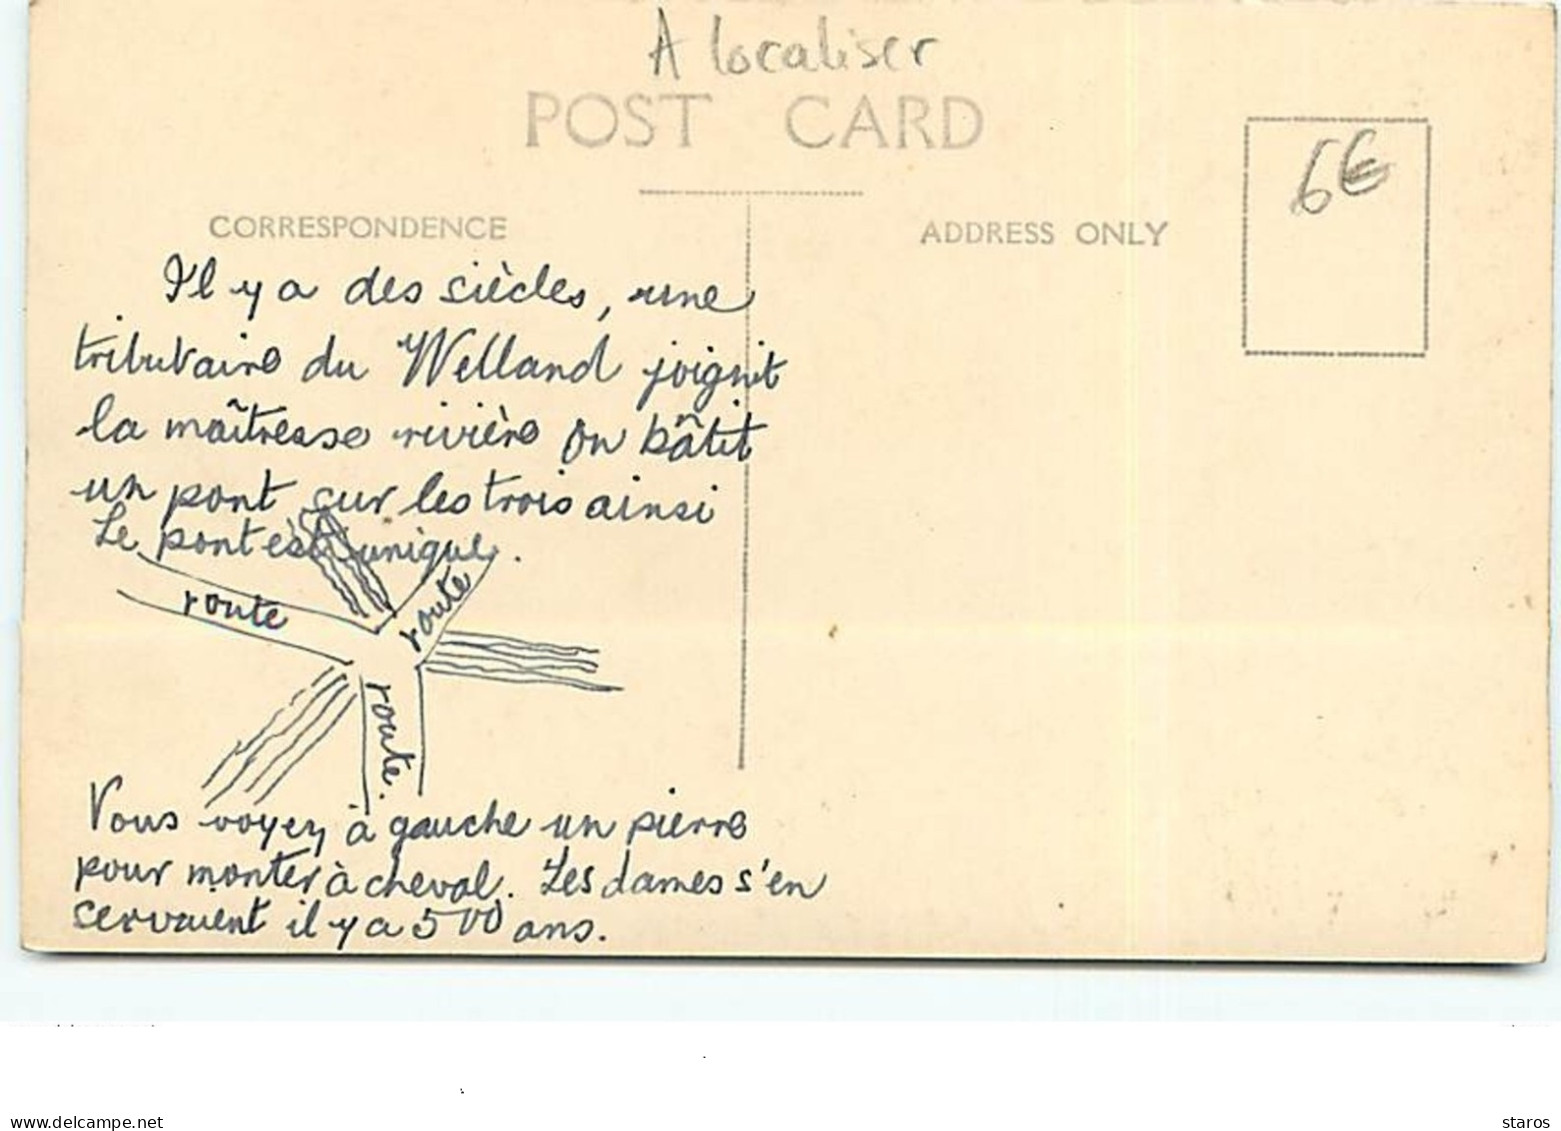 A localiser
POST CARD
6€
CORRESPONDENCE
ADDRESS ONLY
Il y a des siècles, une
tributaire du Welland joignit
la maîtresse rivière on bâtit
un pont sur les trois ainsi
Le pont est unique.
route
route
route
Vous voyez à gauche un pierre
pour monter à cheval. Les dames s'en
servaient il y a 500 ans.
https://www.delcampe.net
staros